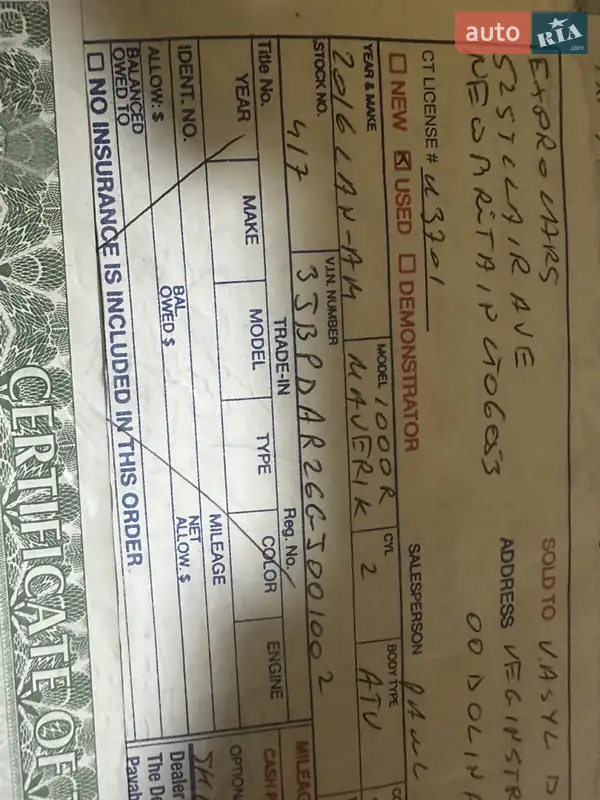 auto RIA .com
EXPRO CARS
525 T CLAIR AVE
NEW BRITAIN CT 06053
SOLD TO VASYL
ADDRESS
CT LICENSE # U3701
SALESPERSON PAUL
NEW USED DEMONSTRATOR
YEAR & MAKE MODEL 1000R CYL BODY TYPE
2016 CAN-AM MAVERIK 2 ATV
STOCK NO. V.I.N. NUMBER
417 3JBPDAR26GJ001002
MILEAG
TRADE-IN
Title No. Reg. No.
CASH P
YEAR MAKE MODEL TYPE COLOR ENGINE
OPTION
IDENT. NO. MILEAGE
ALLOW: $ BAL OWED $ NET ALLOW. $
Dealer
BALANCED OWED TO
The De
NO INSURANCE IS INCLUDED IN THIS ORDER.
Payab
CERTIFICATE OF